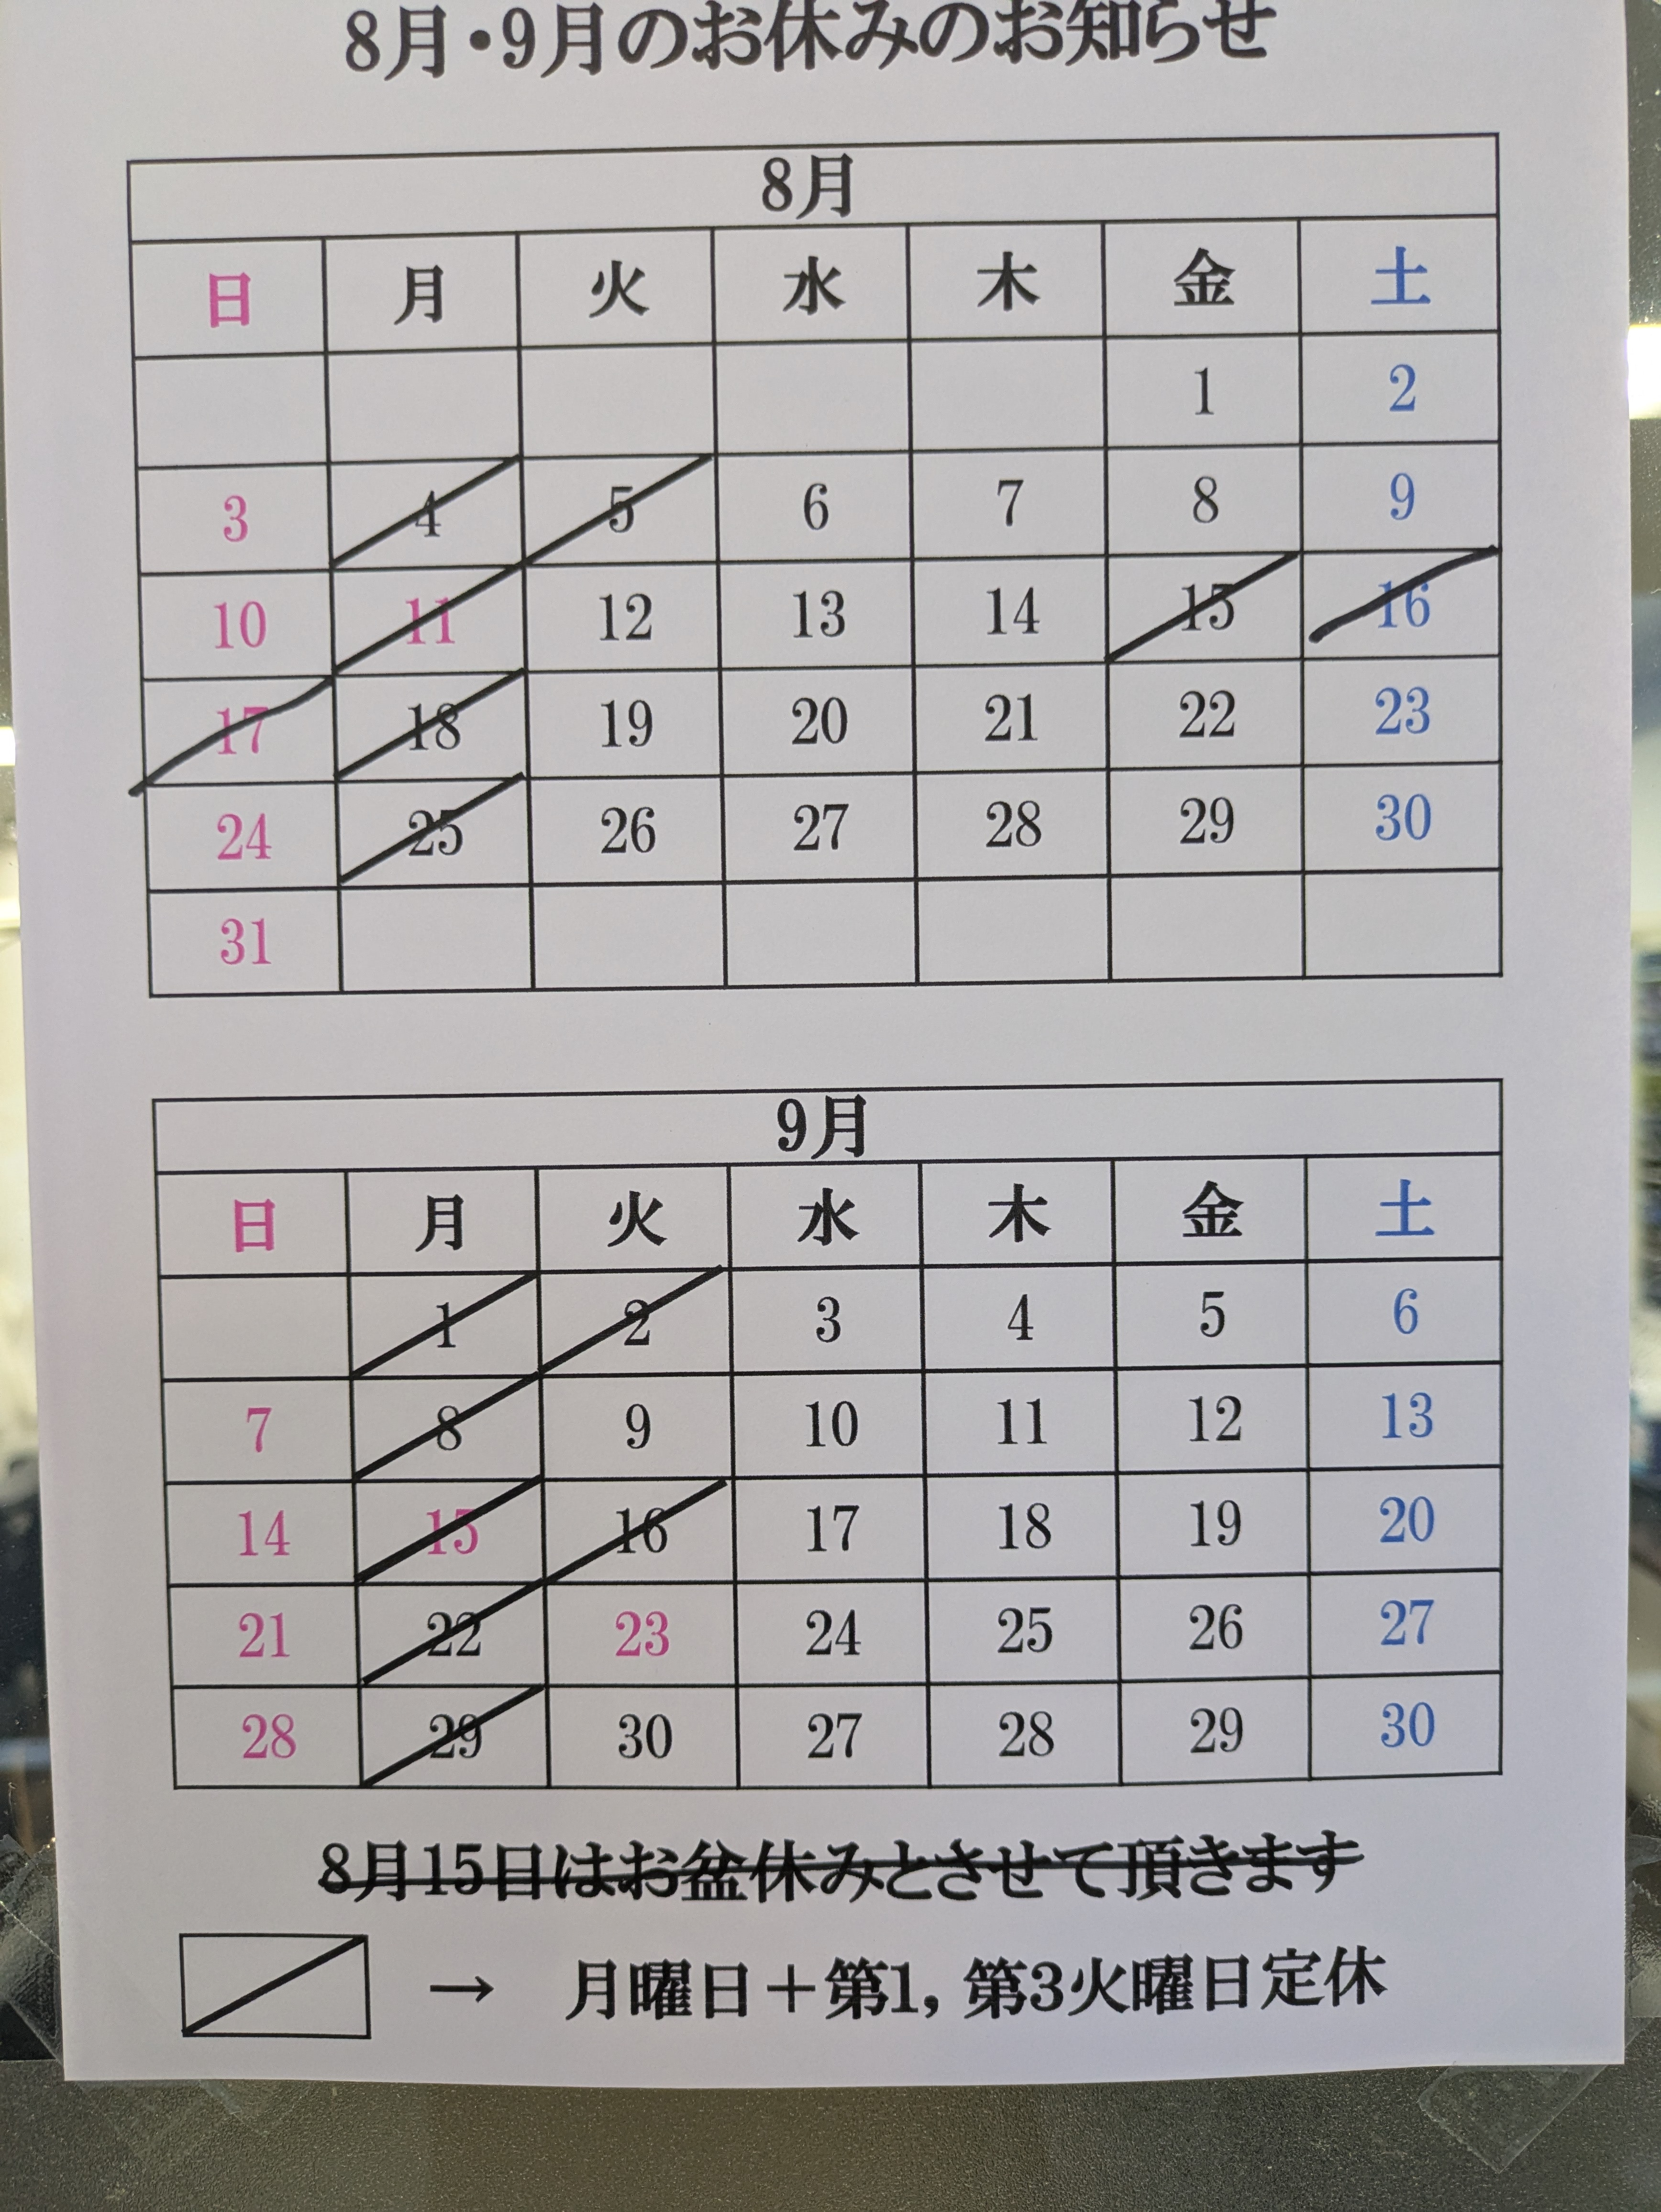 8月・9月のお休みのお知らせ
8月
日 月 火 水 木 金 土
1 2
3 4 5 6 7 8 9
10 11 12 13 14 15 16
17 18 19 20 21 22 23
24 25 26 27 28 29 30
31
9月
日 月 火 水 木 金 土
1 2 3 4 5 6
7 8 9 10 11 12 13
14 15 16 17 18 19 20
21 22 23 24 25 26 27
28 29 30 27 28 29 30
8月15日はお盆休みとさせて頂きます
→ 月曜日＋第1, 第3火曜日定休